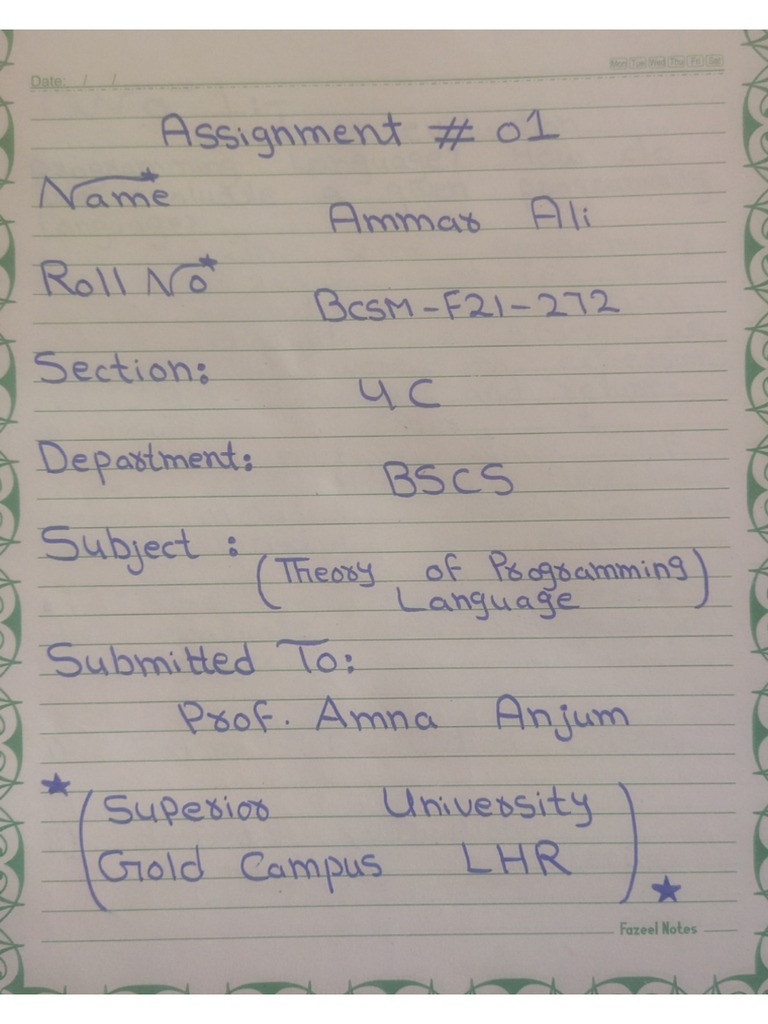 Mon Tue Wed Thu Fri Sat
Date: / /
Assignment # 01
Name
Ammar Ali
Roll No
BCSM-F21-272
Section:
4C
Department:
BSCS
Subject :
(Theory of Programming
Language)
Submitted To:
Prof. Amna Anjum
(Superior University
Gold Campus LHR)
Fazeel Notes